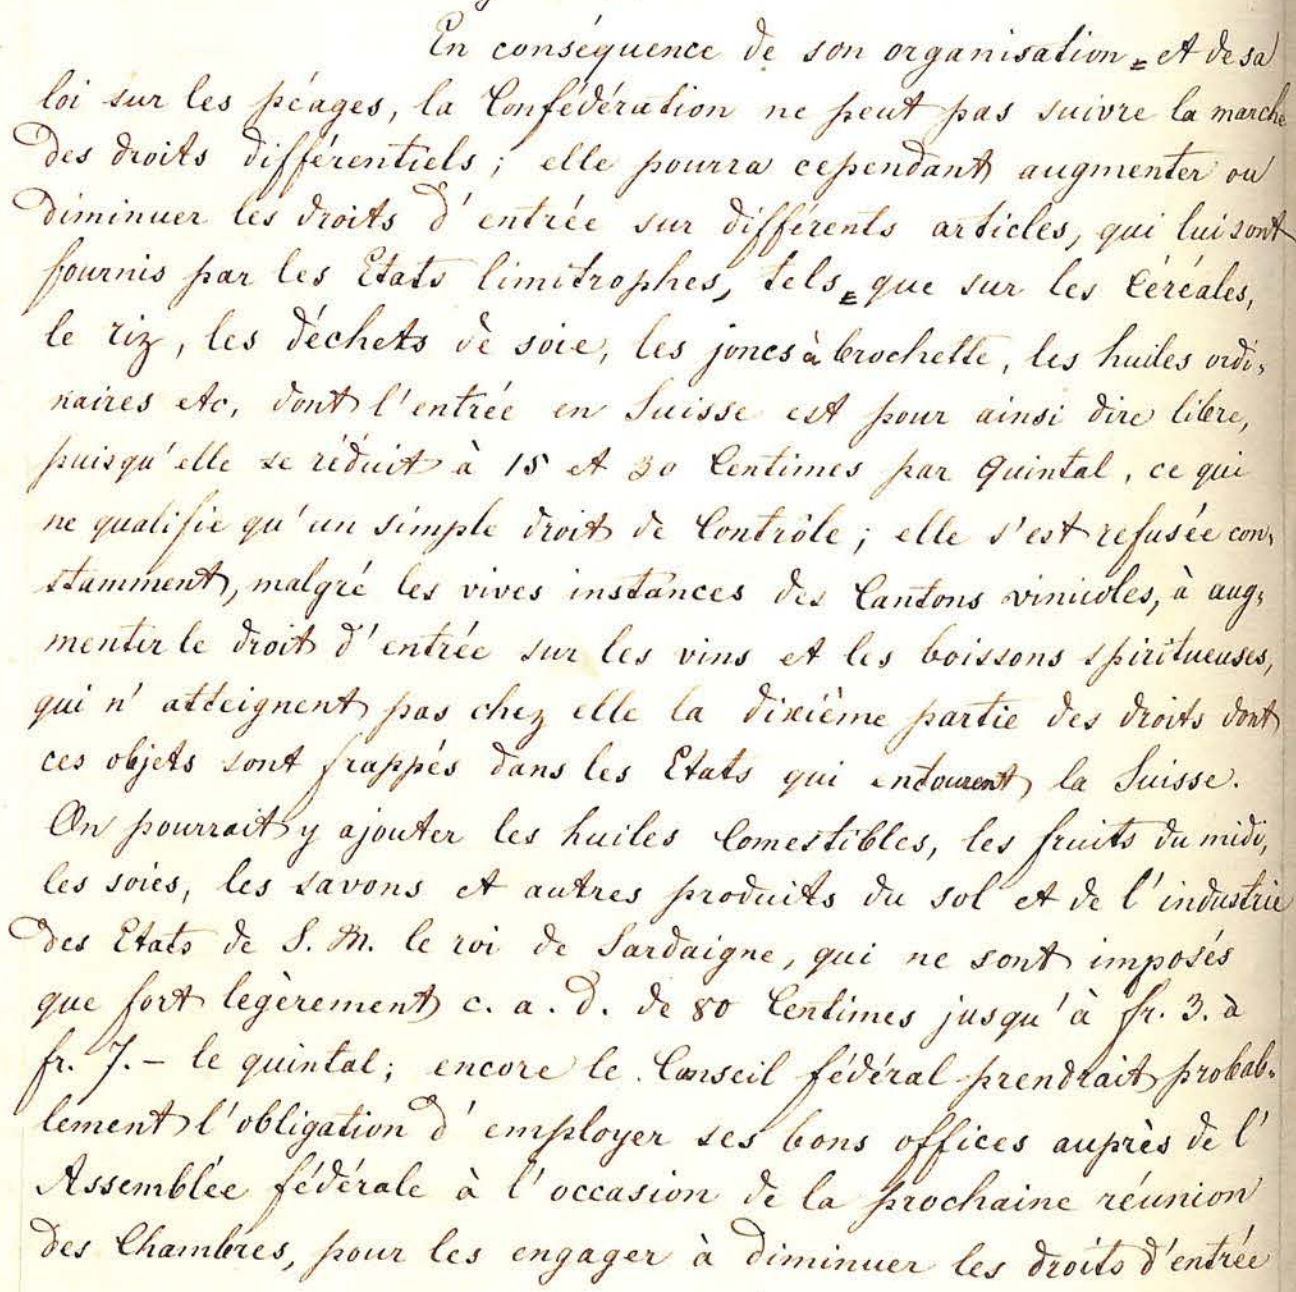 En conséquence de son organisation = et de sa
loi sur les péages, la Confédération ne peut pas suivre la marche
des droits différentiels ; elle pourra cependant augmenter ou
diminuer les droits d'entrée sur différents articles, qui lui sont
fournis par les Etats limitrophes, tels = que sur les Céréales,
le riz, les déchets de soie, les joncs à brochette, les huiles ordi-
naires etc, dont l'entrée en Suisse est pour ainsi dire libre,
puisqu'elle se réduit à 15 et 30 Centimes par Quintal, ce qui
ne qualifie qu'un simple droit de Contrôle ; elle s'est refusée con-
stamment, malgré les vives instances des Cantons vinicoles, à aug-
menter le droit d'entrée sur les vins et les boissons spiritueuses,
qui n'atteignent pas chez elle la dixième partie des droits dont
ces objets sont frappés dans les Etats qui entourent la Suisse.
On pourrait y ajouter les huiles Comestibles, les fruits du midi,
les soies, les savons et autres produits du sol et de l'industrie
des Etats de S. M. le roi de Sardaigne, qui ne sont imposés
que fort legèrement c. a. d. de 80 Centimes jusqu'à fr. 3. à
fr. 7. – le quintal ; encore le Conseil fédéral prendrait probab-
lement l'obligation d'employer ses bons offices auprès de l'
Assemblée fédérale à l'occasion de la prochaine réunion
des Chambres, pour les engager à diminuer les droits d'entrée